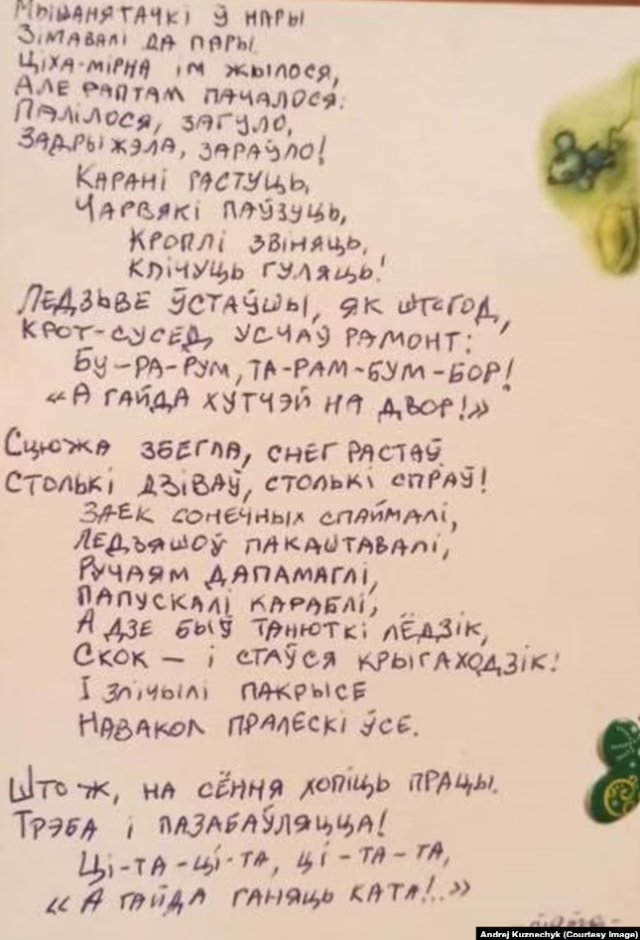 Мышанятачкі ў нары
Зімавалі да пары.
Ціха-мірна ім жылося,
Але раптам пачалося:
Палілося, загуло,
Задрыжэла, зараўло!
Карані растуць,
Чарвякі паўзуць,
Кроплі звіняць,
Клічуць гуляць!
Ледзьве ўстаўшы, як штогод,
Крот-сусед усчаў рамонт:
Бу-ра-рум, та-рам-бум-бор!
«А гайда хутчэй на двор!»
Сцюжа збегла, снег растаў.
Столькі дзіваў, столькі спраў!
Заек сонечных спаймалі,
Ледзяшоў пакаштавалі,
Ручаям дапамаглі,
Папускалі караблі,
А дзе быў танюткі лёдзік,
Скок — і стаўся крыгаходзік!
І злічылі пакрысе
Навакол пралескі ўсе.
Што ж, на сёння хопіць працы.
Трэба і пазабаўляцца!
Ці-та-ці-та, ці-та-та,
«А гайда ганяць ката!..»
Andrej Kuznechyk (Courtesy Image)